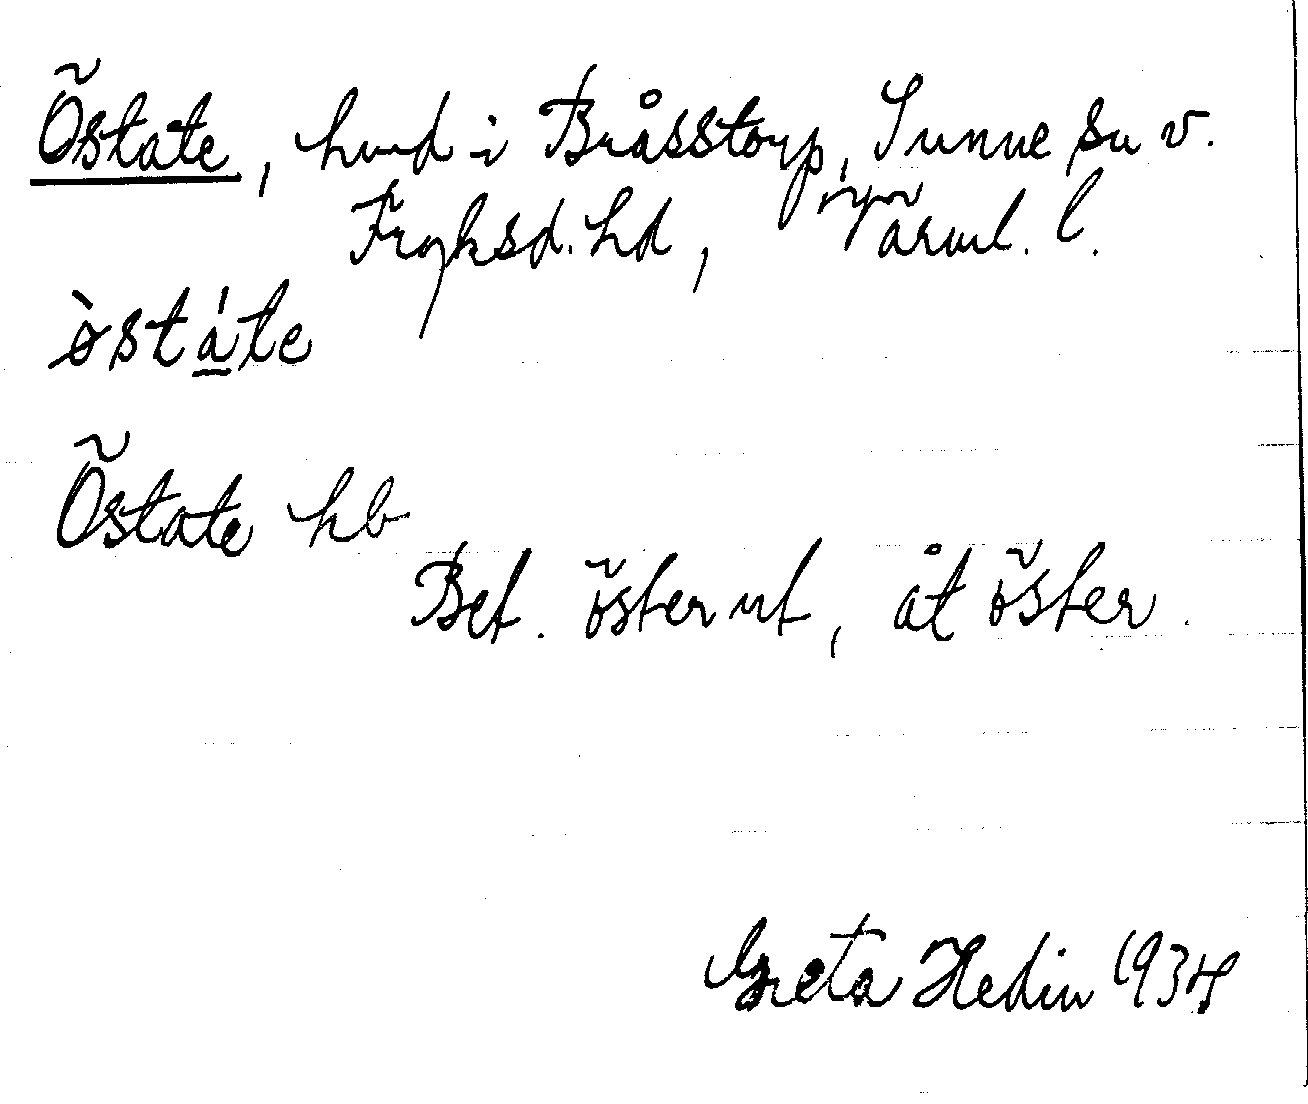 Östate, hmd i Bråsstorp, Sunne sn v.
Fryksd. hd, Värml. l.
östate
Östate hb
Bet. österut, åt öster.
Greta Hedin 1934